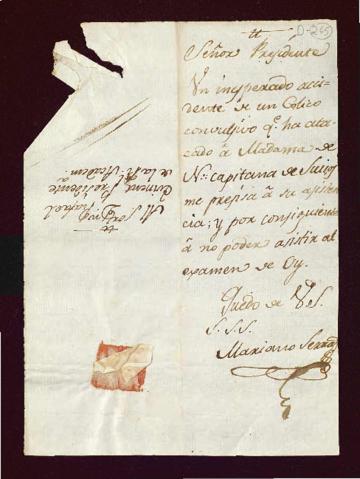 D-265
Señor Presidente
Un inesperado acci-
dente de un Colico
convulsivo q.e ha ata-
cado â Madama de
N. capitana de Suizos
me precisa â su asisten
cia; y por consiguiente
â no poder asistir al
examen de oy.
Quedo de V.S.
S.S.S.
Mariano Serra
Al S.or
Rafael
Presidente
de la R.l Academ.